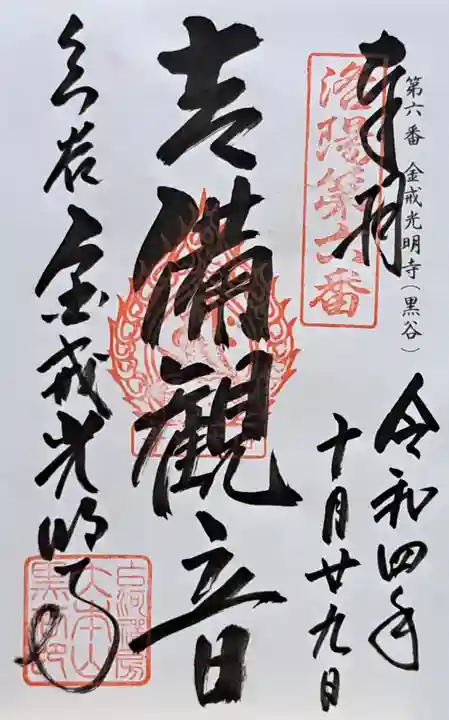 第六番 金戒光明寺(黒谷)
奉拝
洛陽第六番
令和四年
十月廿九日
吉備観音
くろ谷 金戒光明寺
白河禅房
大本山
黒谷